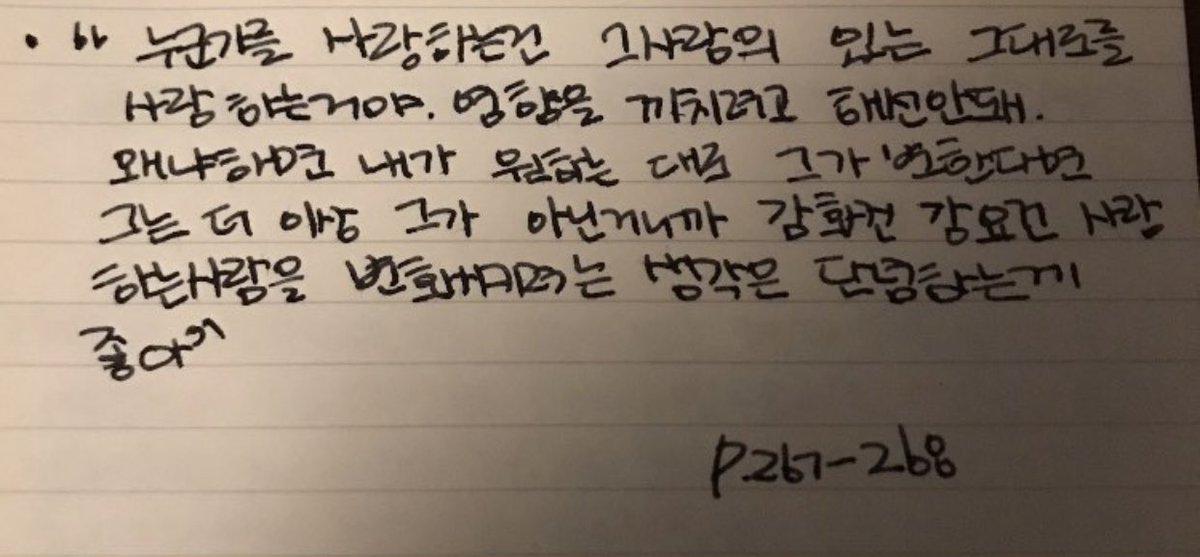 • " 누군가를 사랑하는건 그사람의 있는 그대로를
사랑 하는거야. 영향을 끼치려고 해선안돼.
왜냐하면 내가 원하는 대로 그가 변한다면
그는 더 이상 그가 아닌거니까 감화건 강요건 사랑
하는사람을 변화시키려는 생각은 단념하는게
좋아"
p.267-268